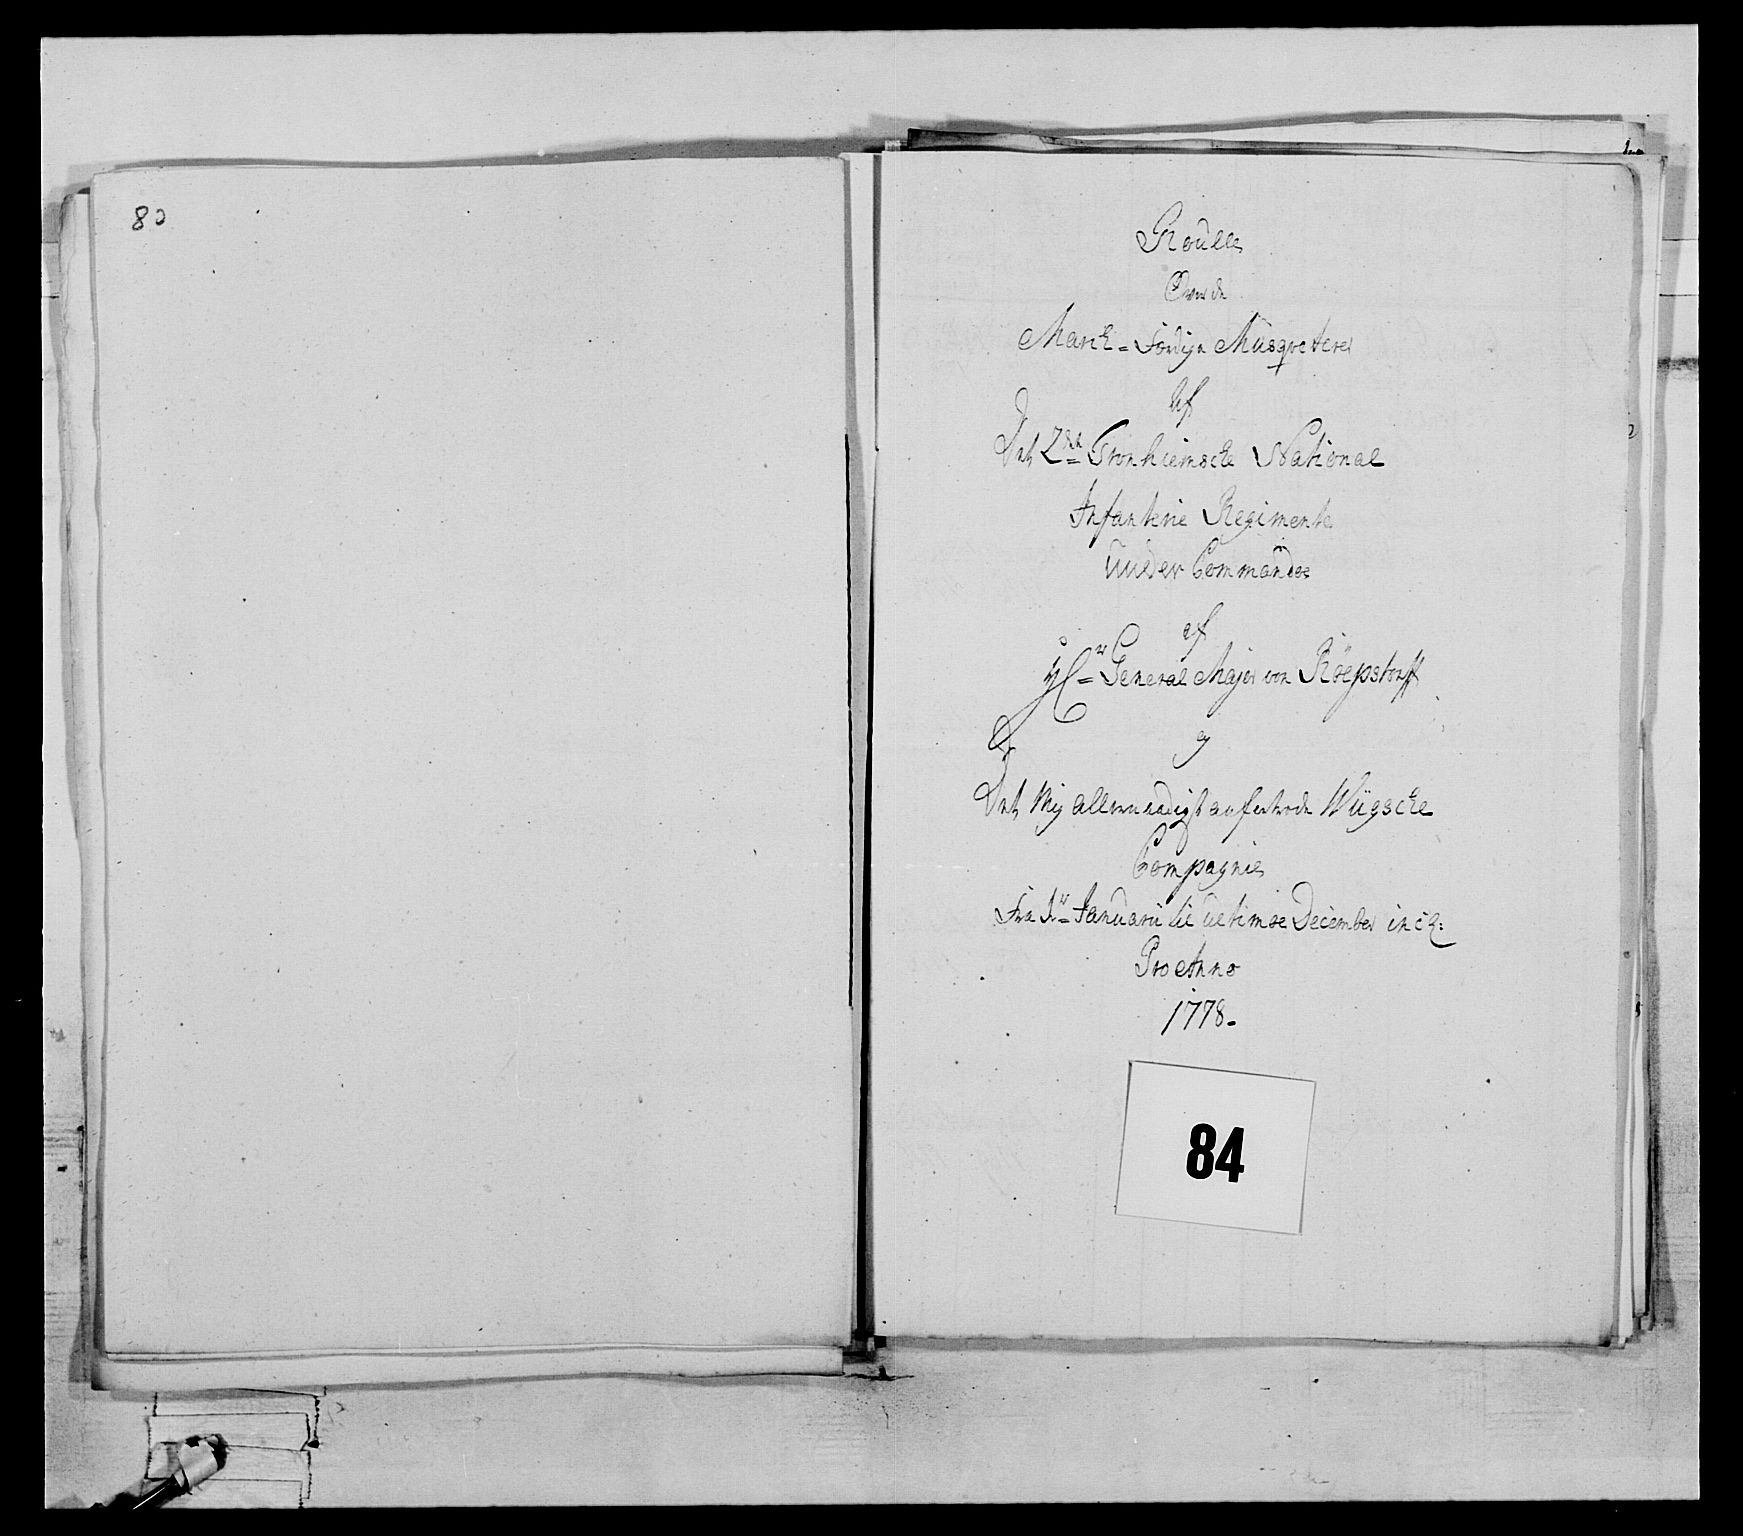 80
Roulle
Over de
March-Færdige Musqveterer
Af
Det 2det Tronhiemske National
Infanterie Regimente
Under Commando
af
Hr General Major von Röepstorff
og
Det Mig allernaadigst anfortrode Wügske
Compagnie
Fra 1te Januarii til ultimoe December incl:
Pro Anno
1778.
84